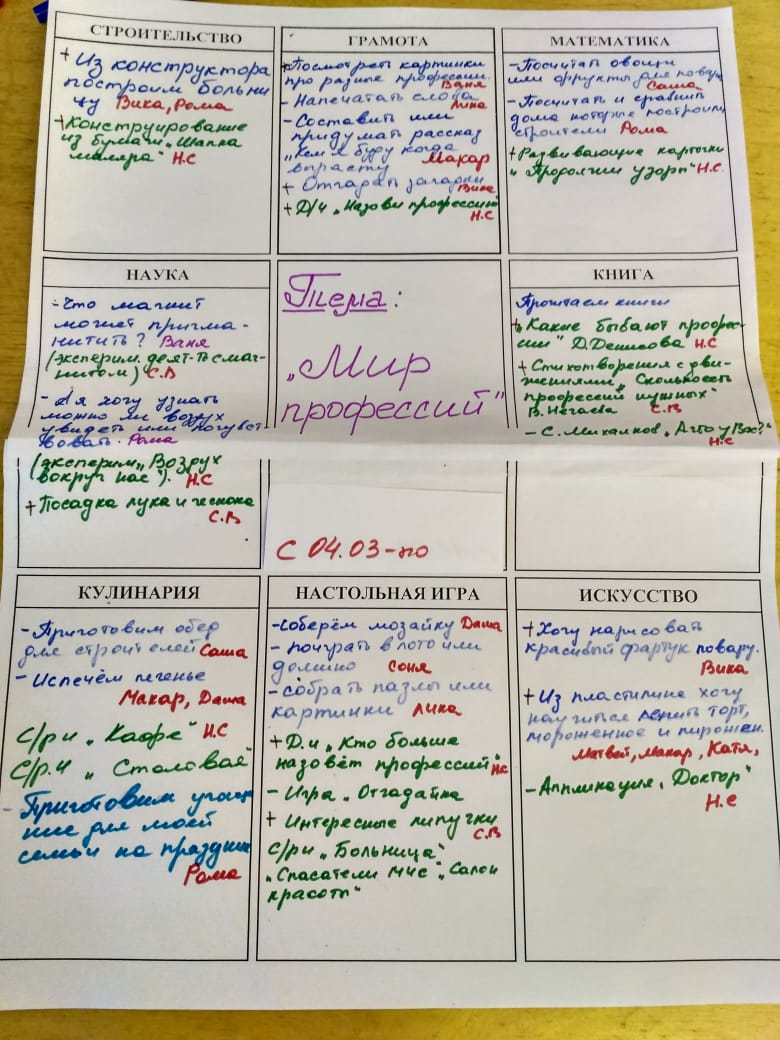 СТРОИТЕЛЬСТВО
+ Из конструктора
построим больни
цу Вика, Рома
+ Конструирование
из бумаги „Шапка
маляра" Н.С
ГРАМОТА
+ Посмотреть картинки
про разные профессии.
Ваня
- Напечатать слова
Лика
- Составить или
придумать рассказ
„Кем я буду когда
вырасту Макар
+ Отгадать загадки
Вика
+ Д/и „Назови профессию"
Н.С
МАТЕМАТИКА
- Посчитать овощи
или фрукты для повара
Саша
- Посчитать и сравнить
дома которые построили
строители Рома
+ Развивающие карточки
„Продолжи узоры" Н.С
НАУКА
- Что магнит
может притма-
нитить? Ваня
(эксперим. деят-ть с маг-
нитом) С.В
- А я хочу узнать
можно ли воздух
увидеть или почувст
вовать. Рома
(эксперим „Воздух
вокруг нас"). Н.С
+ Посадка лука и чеснока
С.В
Тема:
„Мир
профессий"
С 04.03-по
КНИГА
Прочитаем книги
+ „Какие бывают профес-
сии" Д.Денисова Н.С
+ Стихотворения с дви-
жениями „Сколько есть
профессий нужных"
В. Нечаева С.В
- С. Михалков „А что у Вас?"
Н.С
КУЛИНАРИЯ
- Приготовим обед
для строителей Саша
- Испечём печенье
Макар, Даша
С/р и „Кафе" Н.С
С/р.и „Столовая"
- Приготовим угоще
ние для моей
семьи на праздник
Рома
НАСТОЛЬНАЯ ИГРА
- соберём мозайку Даша
- поиграть в лото или
домино Соня
- собрать пазлы или
картинки Лика
+ Д.и „Кто больше
назовёт профессий" Н.С
- Игра „Отгадайка
+ Интересные липучки
С.В
С/ри „Больница"
„Спасатели МЧС", „Салон
красоты"
ИСКУССТВО
+ Хочу нарисовать
красивый фартук повару.
Вика
+ Из пластилина хочу
научиться лепить торт,
мороженное и пирожен.
Матвей, Макар, Катя,
- Аппликация „Доктор"
Н.С